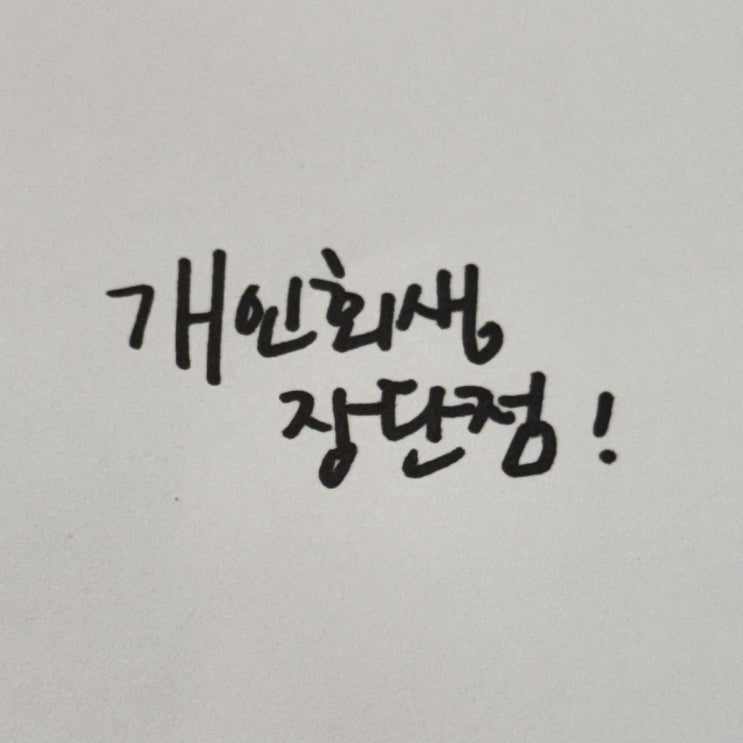 개인회생
장단점!